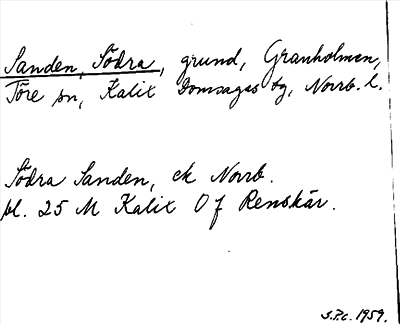 Sanden, Södra, grund, Granholmen,
Töre sn, Kalix domsagas tg, Norrb. l.
Södra Sanden, ek Norrb.
bl. 25 M Kalix O f Renskär.
S.P.c. 1959.